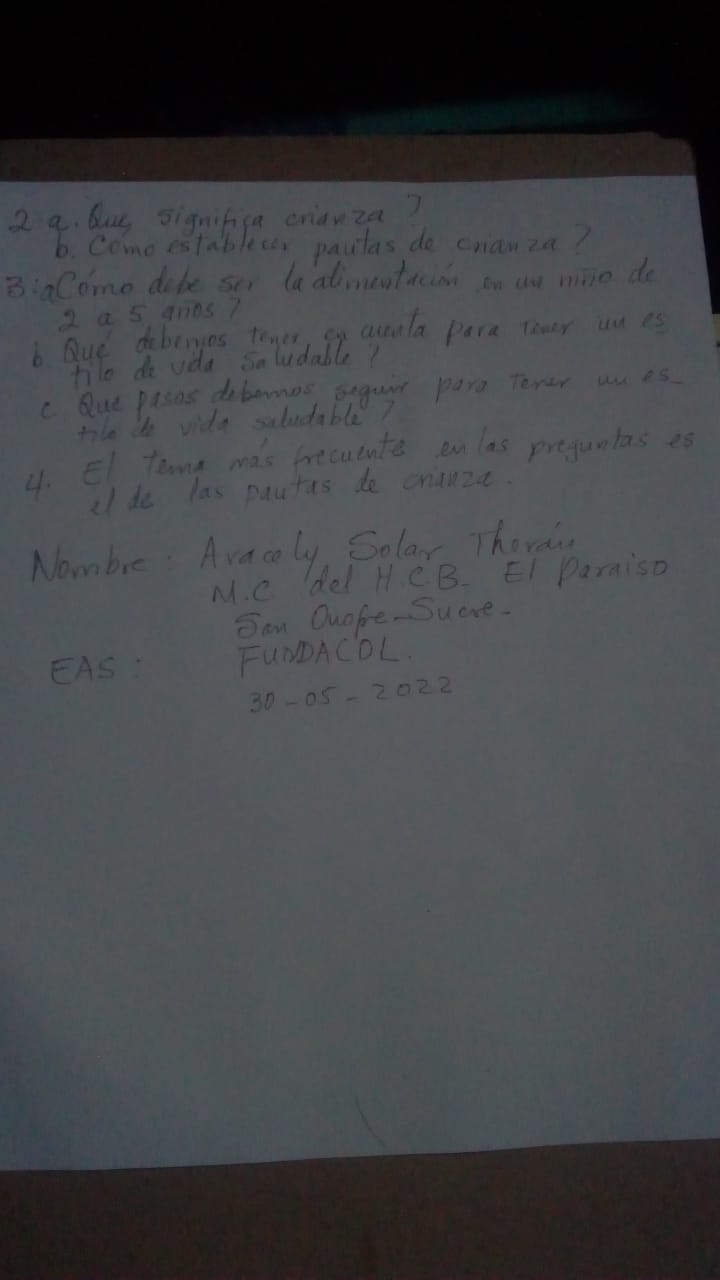 2 a. Que significa crianza?
b. Como establecer pautas de crianza?
3: a Cómo debe ser la alimentación en un niño de
2 a 5 años?
b. Qué debemos tener en cuenta para tener un es
tilo de vida saludable?
c Que pasos debemos seguir para tener un es-
tilo de vida saludable?
4. El tema más frecuente en las preguntas es
el de las pautas de crianza.
Nombre: Aracely Solar
M.C. del H.C.B. El Paraiso
San Onofre-Sucre-
EAS: FUNDACOL.
30-05-2022